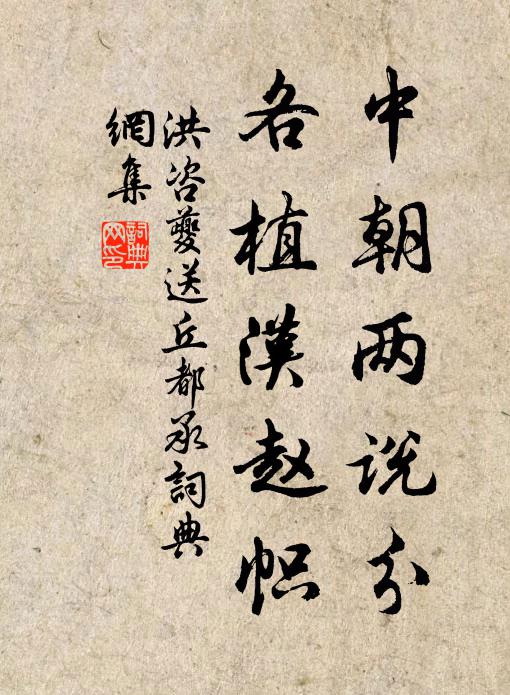 中朝两说分
各植汉赵帜
洪咨夔送丘都承詞典
網集
詞典
网印